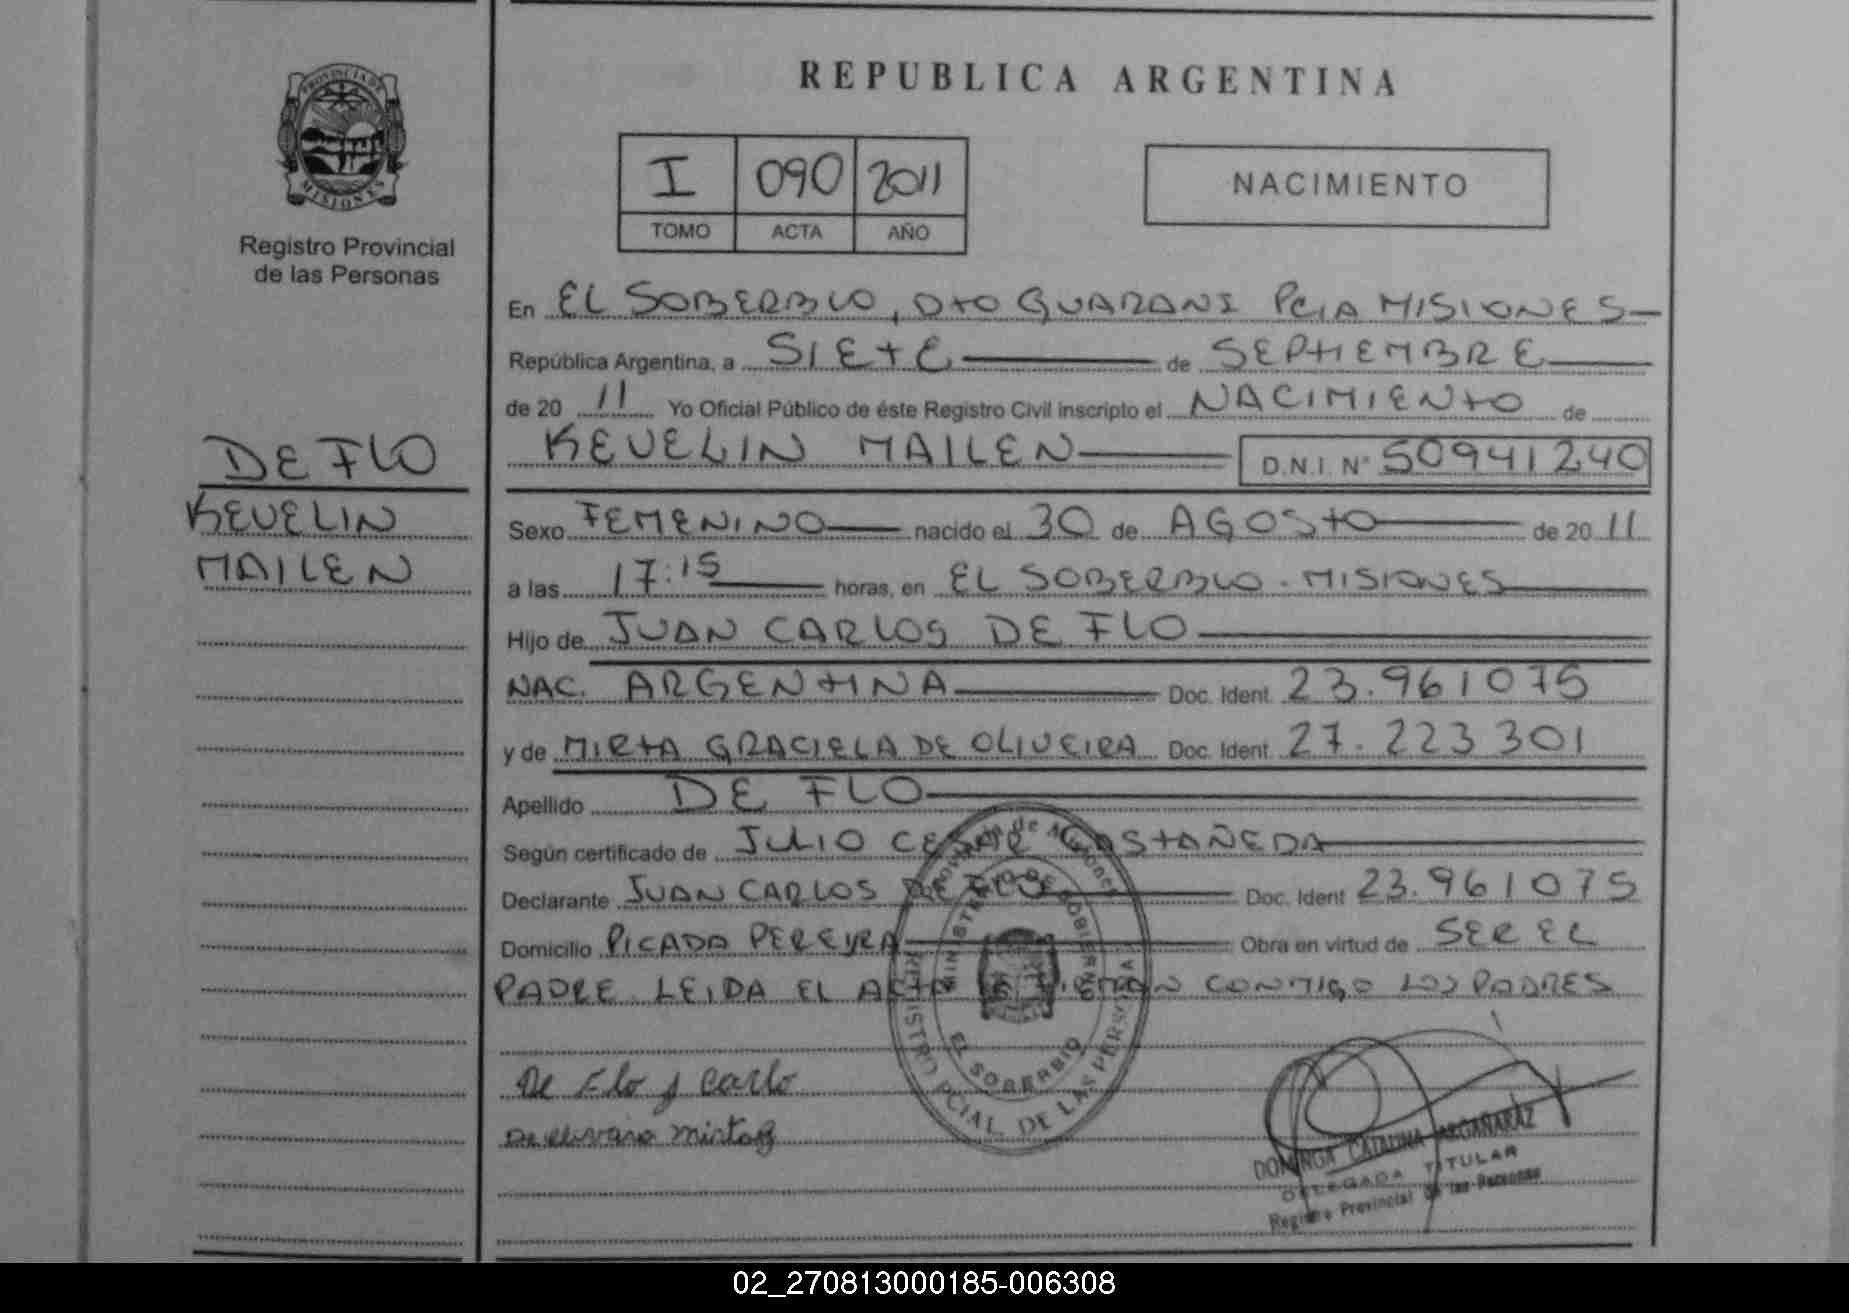 REPUBLICA ARGENTINA
PROVINCIA DE MISIONES
Registro Provincial
de las Personas
I 090 2011
TOMO ACTA AÑO
NACIMIENTO
En EL SOBERBIO, DTO GUARANI PCIA MISIONES
República Argentina, a SIETE de SEPTIEMBRE
de 20 11 Yo Oficial Público de éste Registro Civil inscripto el NACIMIENTO de
KEVELIN MAILEN D.N.I. N° 50941240
DE FLO
KEVELIN
MAILEN
Sexo FEMENINO nacido el 30 de AGOSTO de 20 11
a las 17:15 horas, en EL SOBERBIO. MISIONES
Hijo de JUAN CARLOS DE FLO
NAC. ARGENTINA Doc. Ident. 23.961075
y de MIRTA GRACIELA DE OLIVEIRA Doc. Ident. 27.223301
Apellido DE FLO
Según certificado de JULIO CESAR CASTAÑEDA
Declarante JUAN CARLOS DE FLO Doc. Ident 23.961075
Domicilio PICADA PEREYRA Obra en virtud de SER EL
PADRE LEIDA EL ACTA LA FIRMAN CONMIGO LOS PADRES
Provincia de Misiones
MINISTERIO DE GOBIERNO
EL SOBERBIO
REGISTRO PCIAL. DE LAS PERSONAS
De Flo J Carlo
mirta g
DOMINGA CATALINA ARGAÑARAZ
DELEGADA TITULAR
Registro Provincial de las Personas
02_270813000185-006308